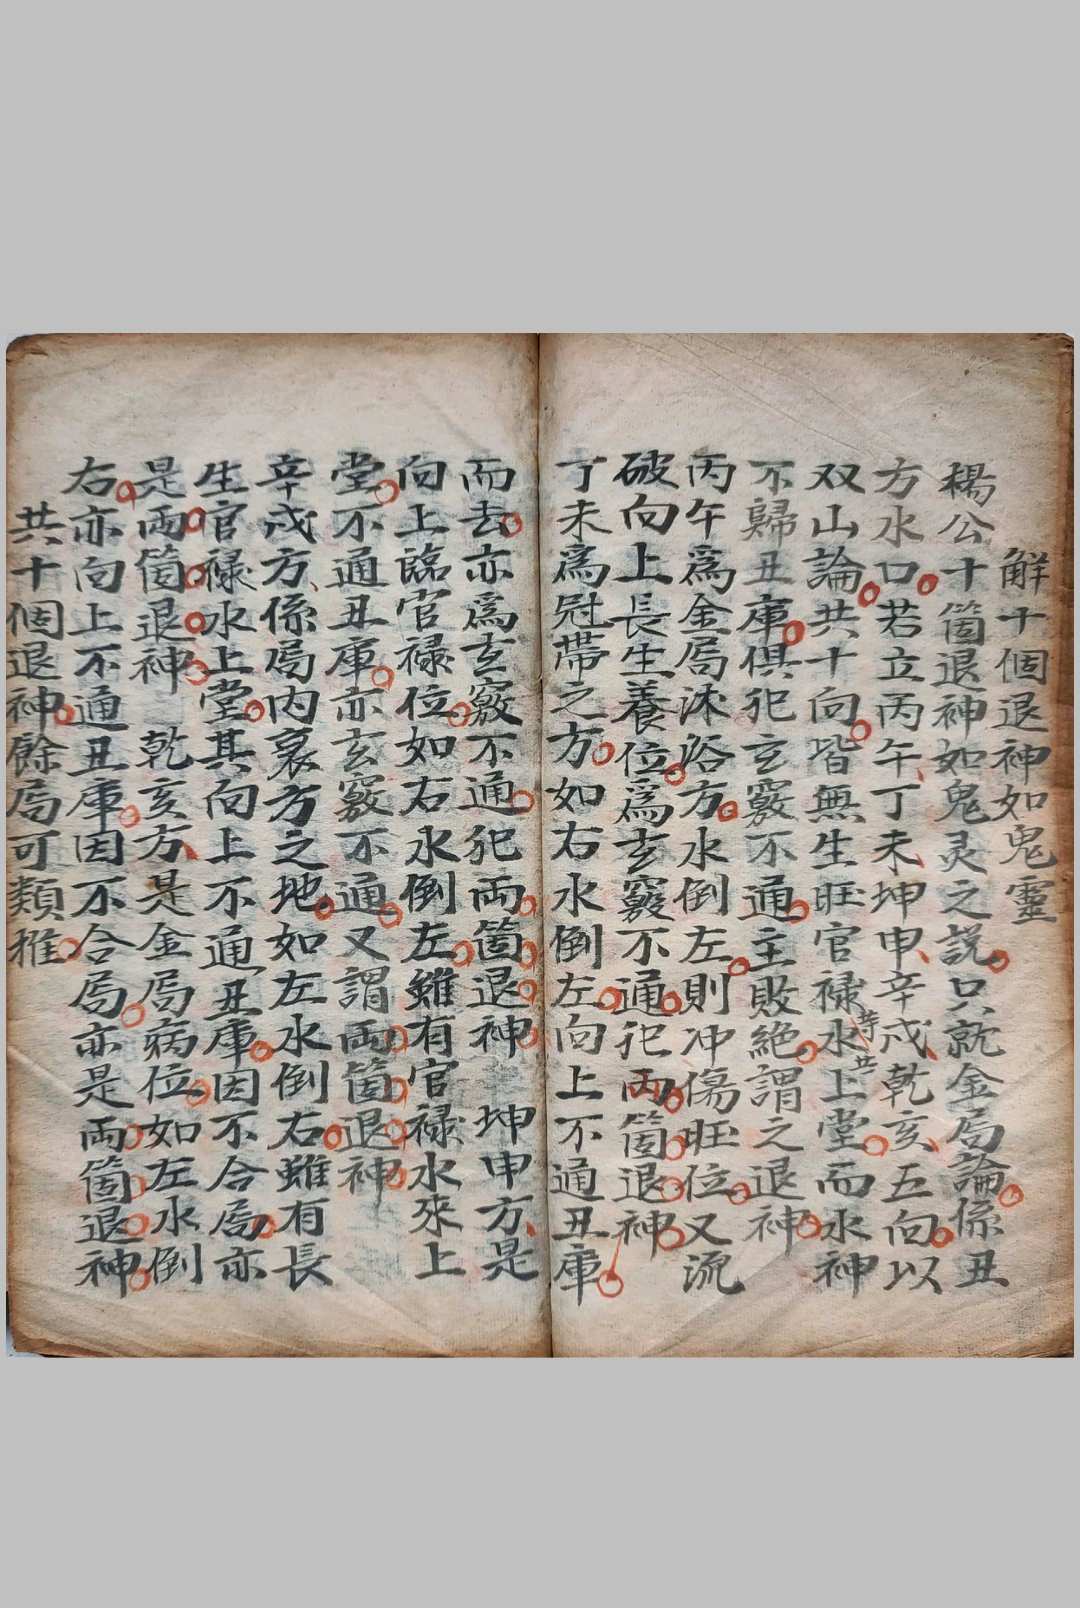 解十個退神如鬼靈
楊公十箇退神如鬼灵之説只就金局論係丑
方水口若立丙午丁未坤申辛戌乾亥五向以
双山論共十向皆無生旺官祿水等共上堂而水神
不歸丑庫俱犯玄竅不通主敗絶謂之退神
丙午為金局沐浴方水倒左則冲傷旺位又流
破向上長生養位為玄竅不通犯両箇退神
丁未為冠帶之方如右水倒左向上不通丑庫
而去亦為玄竅不通犯両箇退神 坤申方是
向上臨官祿位如右水倒左雖有官祿水來上
堂不通丑庫亦玄竅不通又謂両箇退神
辛戌方係局内衰方之地如左水倒右雖有長
生官祿水上堂其向上不通丑庫因不合局亦
是両箇退神 乾亥方是金局病位如左水倒
右亦向上不通丑庫因不合局亦是両箇退神
共十個退神餘局可類推